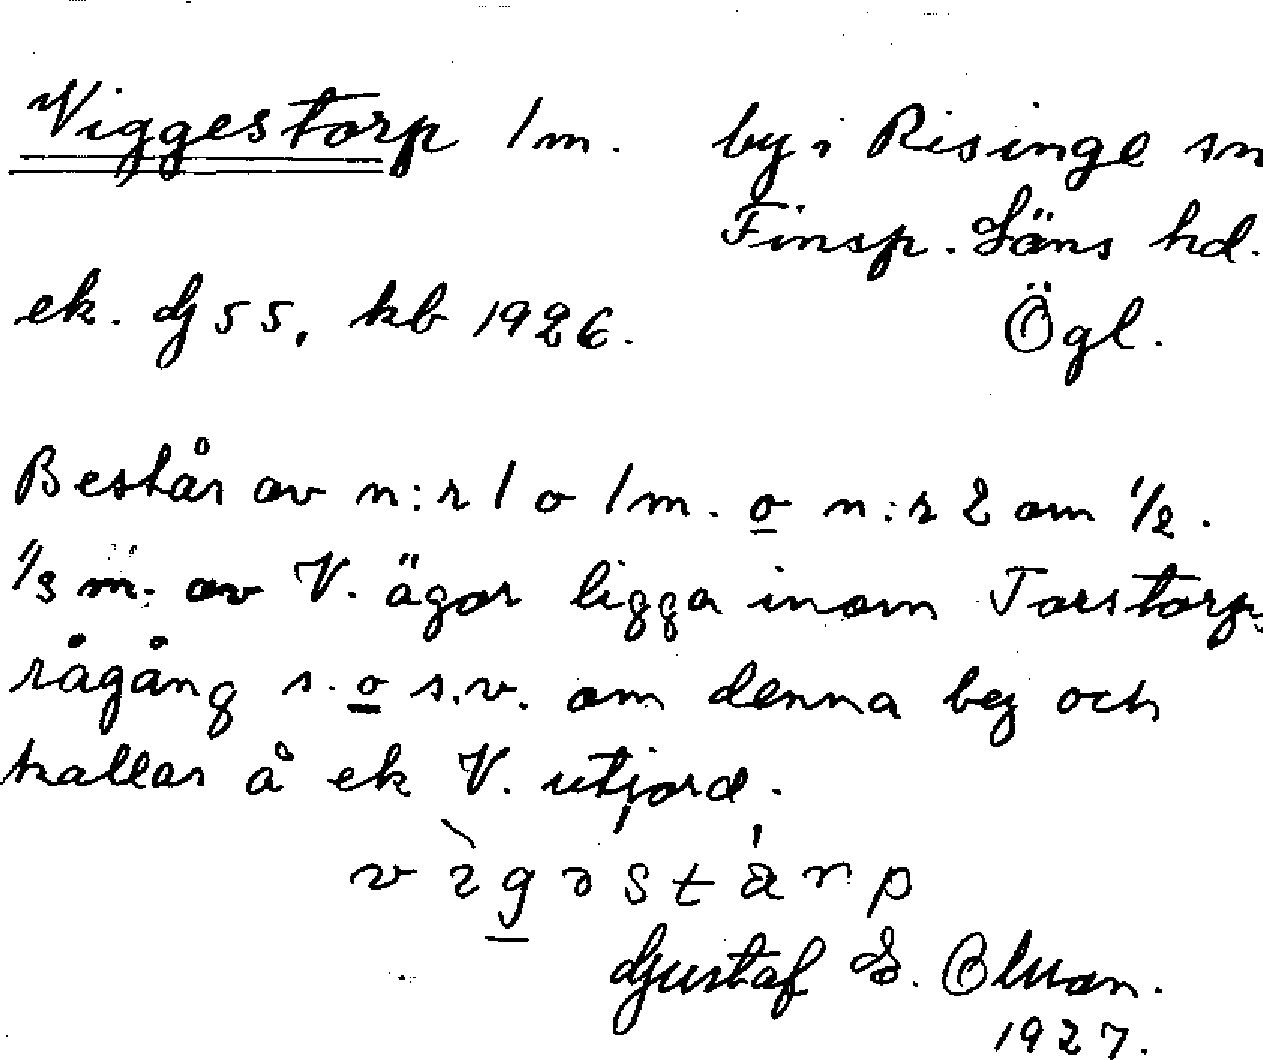 Viggestorp 1 m. by i Risinge sn
Finsp. Läns hd.
ek. dj 55, kb 1926. Ögl.
Består av n:r 1 o 1 m. o n:r 2 om 1/2.
1/3 m. av V. ägor ligga inom Torstorp
rågång s. o s.v. om denna by och
kallas å ek V. utjord.
vìgəstárp
Gustaf E. Olsson.
1927.